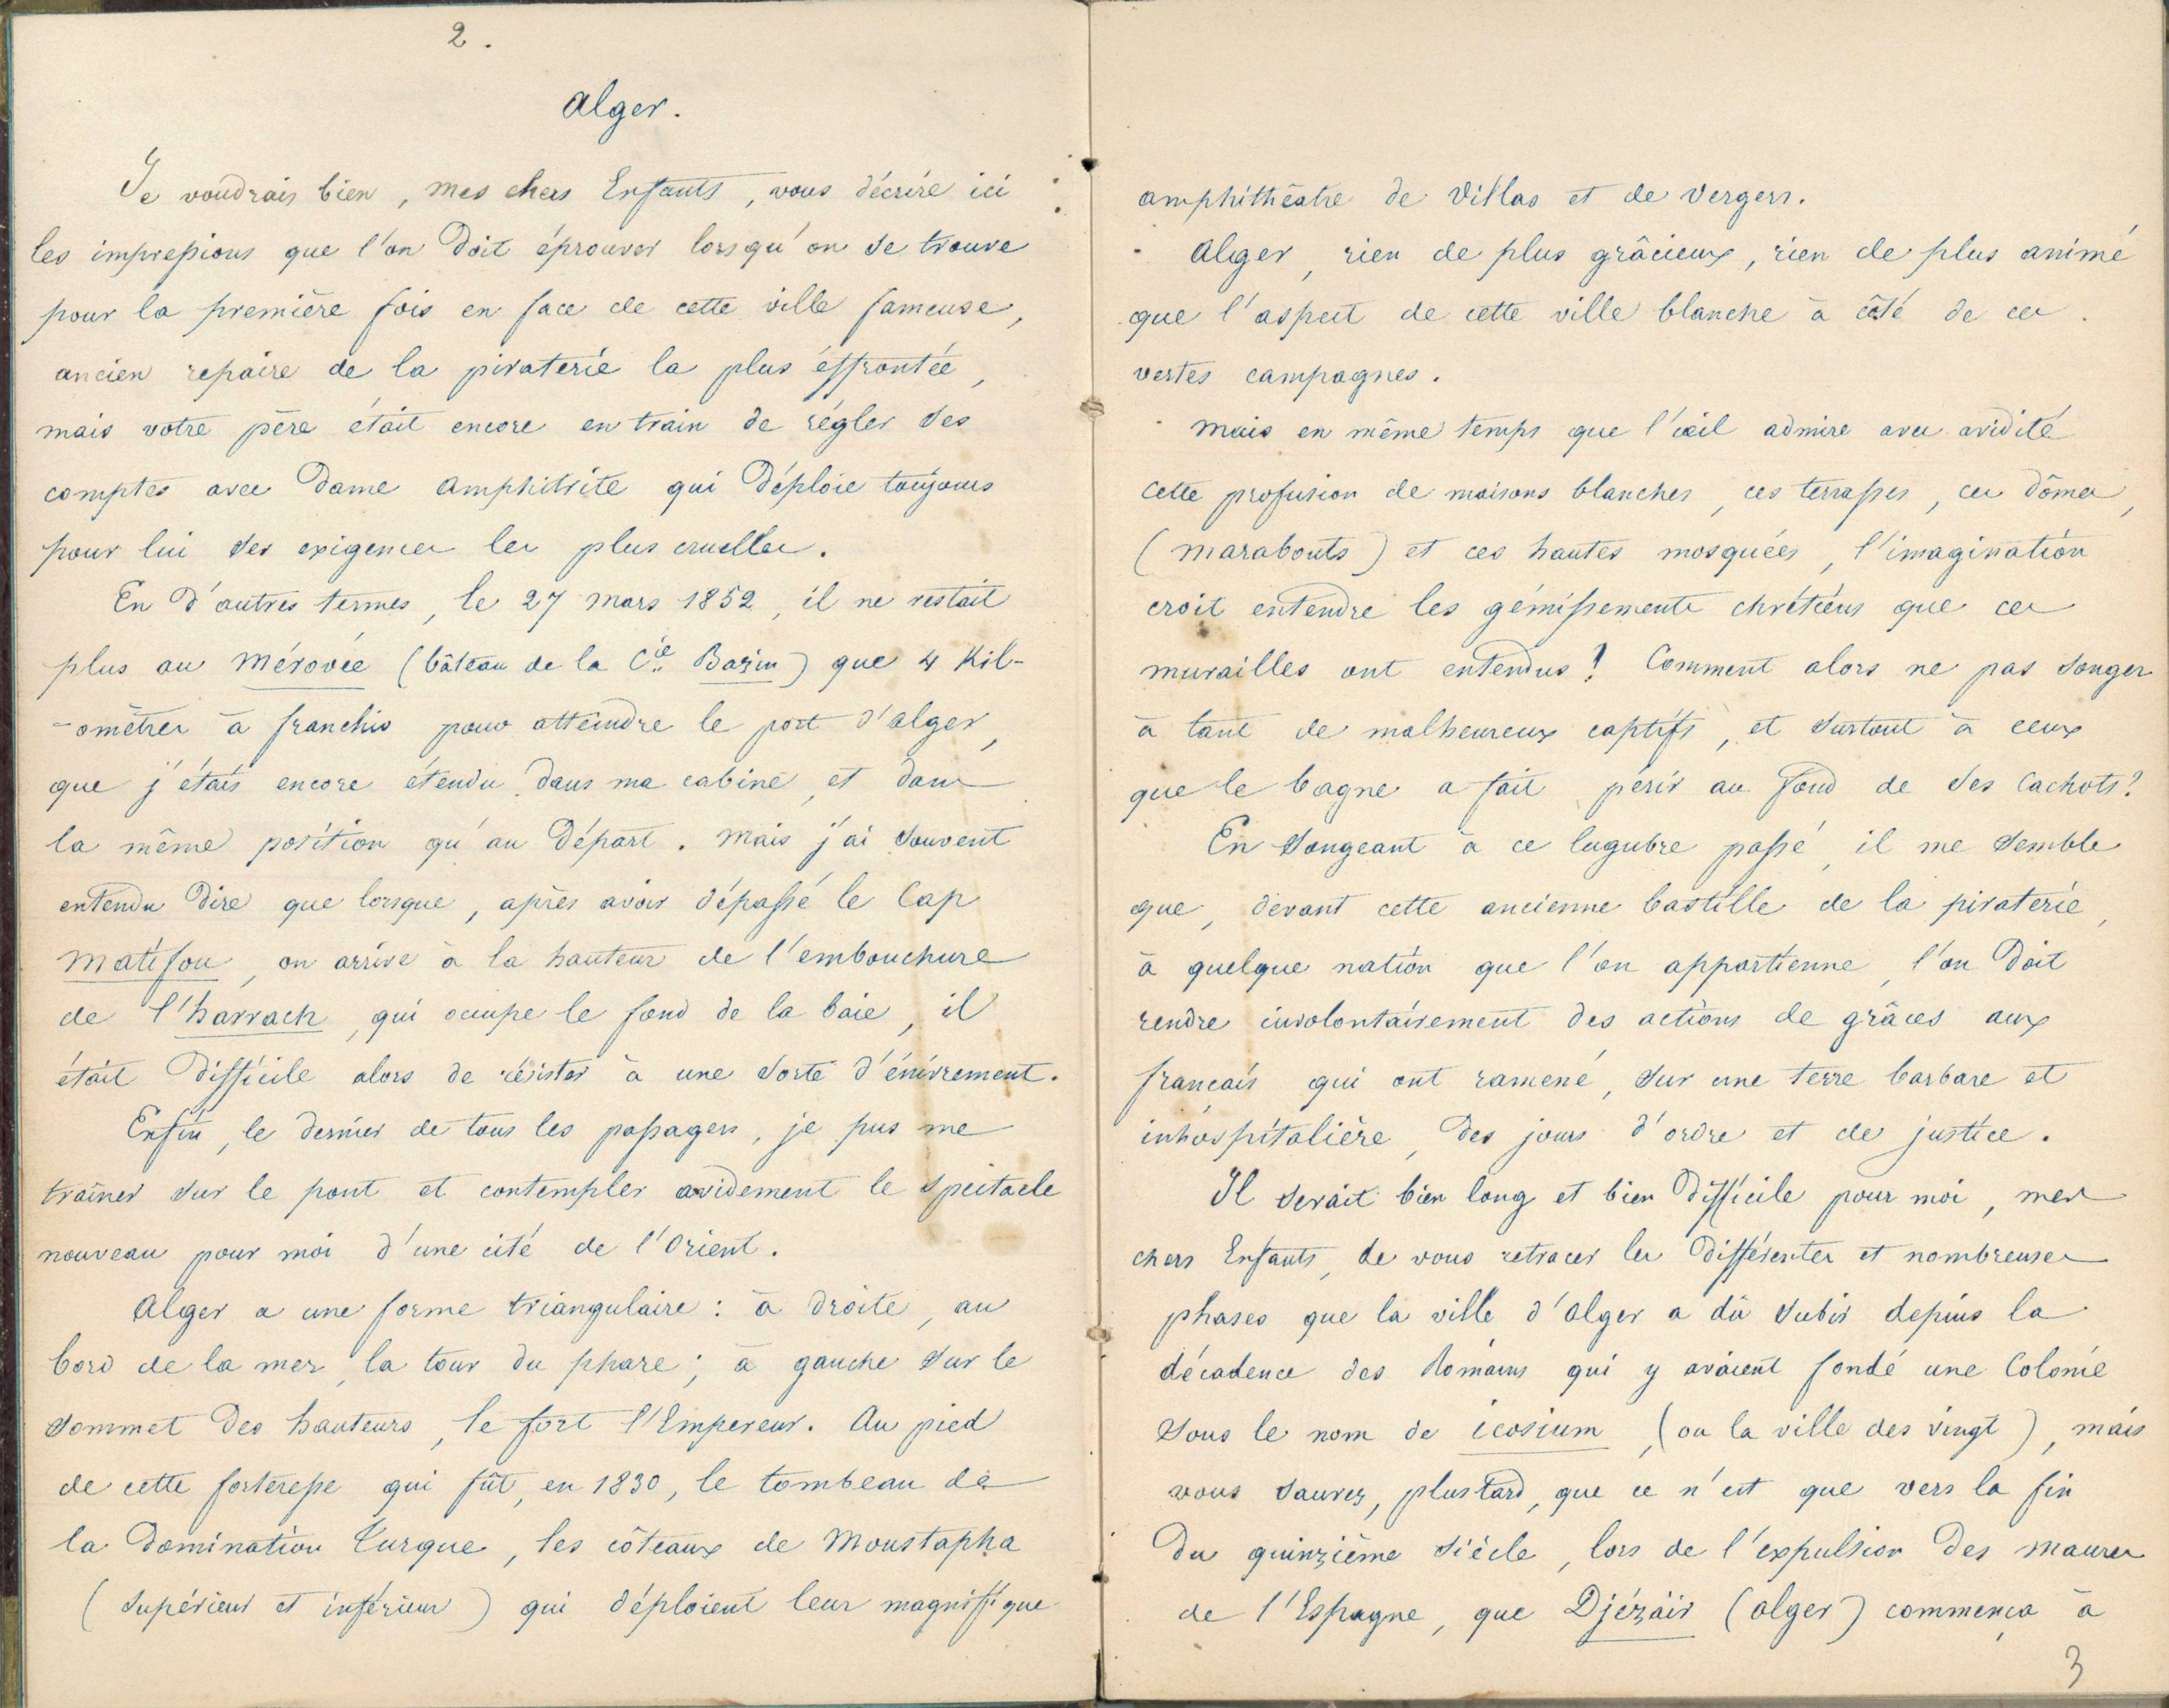 2.
Alger.
Je voudrais bien, mes chers Enfants, vous décrire ici
les impressions que l'on doit éprouver lorsqu'on se trouve
pour la première fois en face de cette ville fameuse,
ancien repaire de la piraterie la plus éffrontée,
mais votre père était encore en train de régler ses
comptes avec Dame Amphitrite qui déploie toujours
pour lui ses exigences les plus cruelles.
En d'autres termes, le 27 Mars 1852, il ne restait
plus au Mérovée (bâteau de la Cie Bazin) que 4 Kil-
-omètres à franchir pour atteindre le port d'Alger,
que j'étais encore étendu dans ma cabine, et dans
la même position qu'au départ. Mais j'ai souvent
entendu dire que lorsque, après avoir dépassé le Cap
Matifou, on arrive à la hauteur de l'embouchure
de l'harrach, qui occupe le fond de la baie, il
était difficile alors de résister à une sorte d'énivrement.
Enfin, le dernier de tous les passagers, je pus me
traîner sur le pont et contempler avidement le spectacle
nouveau pour moi d'une cité de l'Orient.
Alger a une forme triangulaire: à droite, au
bord de la mer, la tour du phare; à gauche sur le
sommet des hauteurs, le fort l'Empereur. Au pied
de cette forteresse qui fût, en 1830, le tombeau de
la domination Turque, les côteaux de Moustapha
(supérieur et inférieur) qui déploient leur magnifique
amphithéatre de Villas et de Vergers.
Alger, rien de plus grâcieux, rien de plus animé
que l'aspect de cette ville blanche à côté de ces
vertes campagnes.
Mais en même temps que l'œil admire avec avidité
cette profusion de maisons blanches, ces terrasses, ces dômes,
(Marabouts) et ces hautes mosquées, l'imagination
croit entendre les gémissements chrétiens que ces
murailles ont entendus! Comment alors ne pas songer
à tant de malheureux captifs, et surtout à ceux
que le bagne a fait périr au fond de ses Cachots?
En songeant à ce lugubre passé, il me semble
que, devant cette ancienne bastille de la piraterie,
à quelque nation que l'on appartienne, l'on doit
rendre involontairement des actions de grâces aux
français qui ont ramené, sur une terre barbare et
inhospitalière, des jours d'ordre et de justice.
Il serait bien long et bien difficile pour moi, mes
chers Enfants, de vous retracer les différentes et nombreuses
phases que la ville d'Alger a dû subir depuis la
décadence des Romains qui y avaient fondé une Colonie
sous le nom de icosium, (ou la ville des vingt), mais
vous saurez, plus tard, que ce n'est que vers la fin
du quinzième siècle, lors de l'expulsion des Maures
de l'Espagne, que Djézaïr (Alger) commença à
3